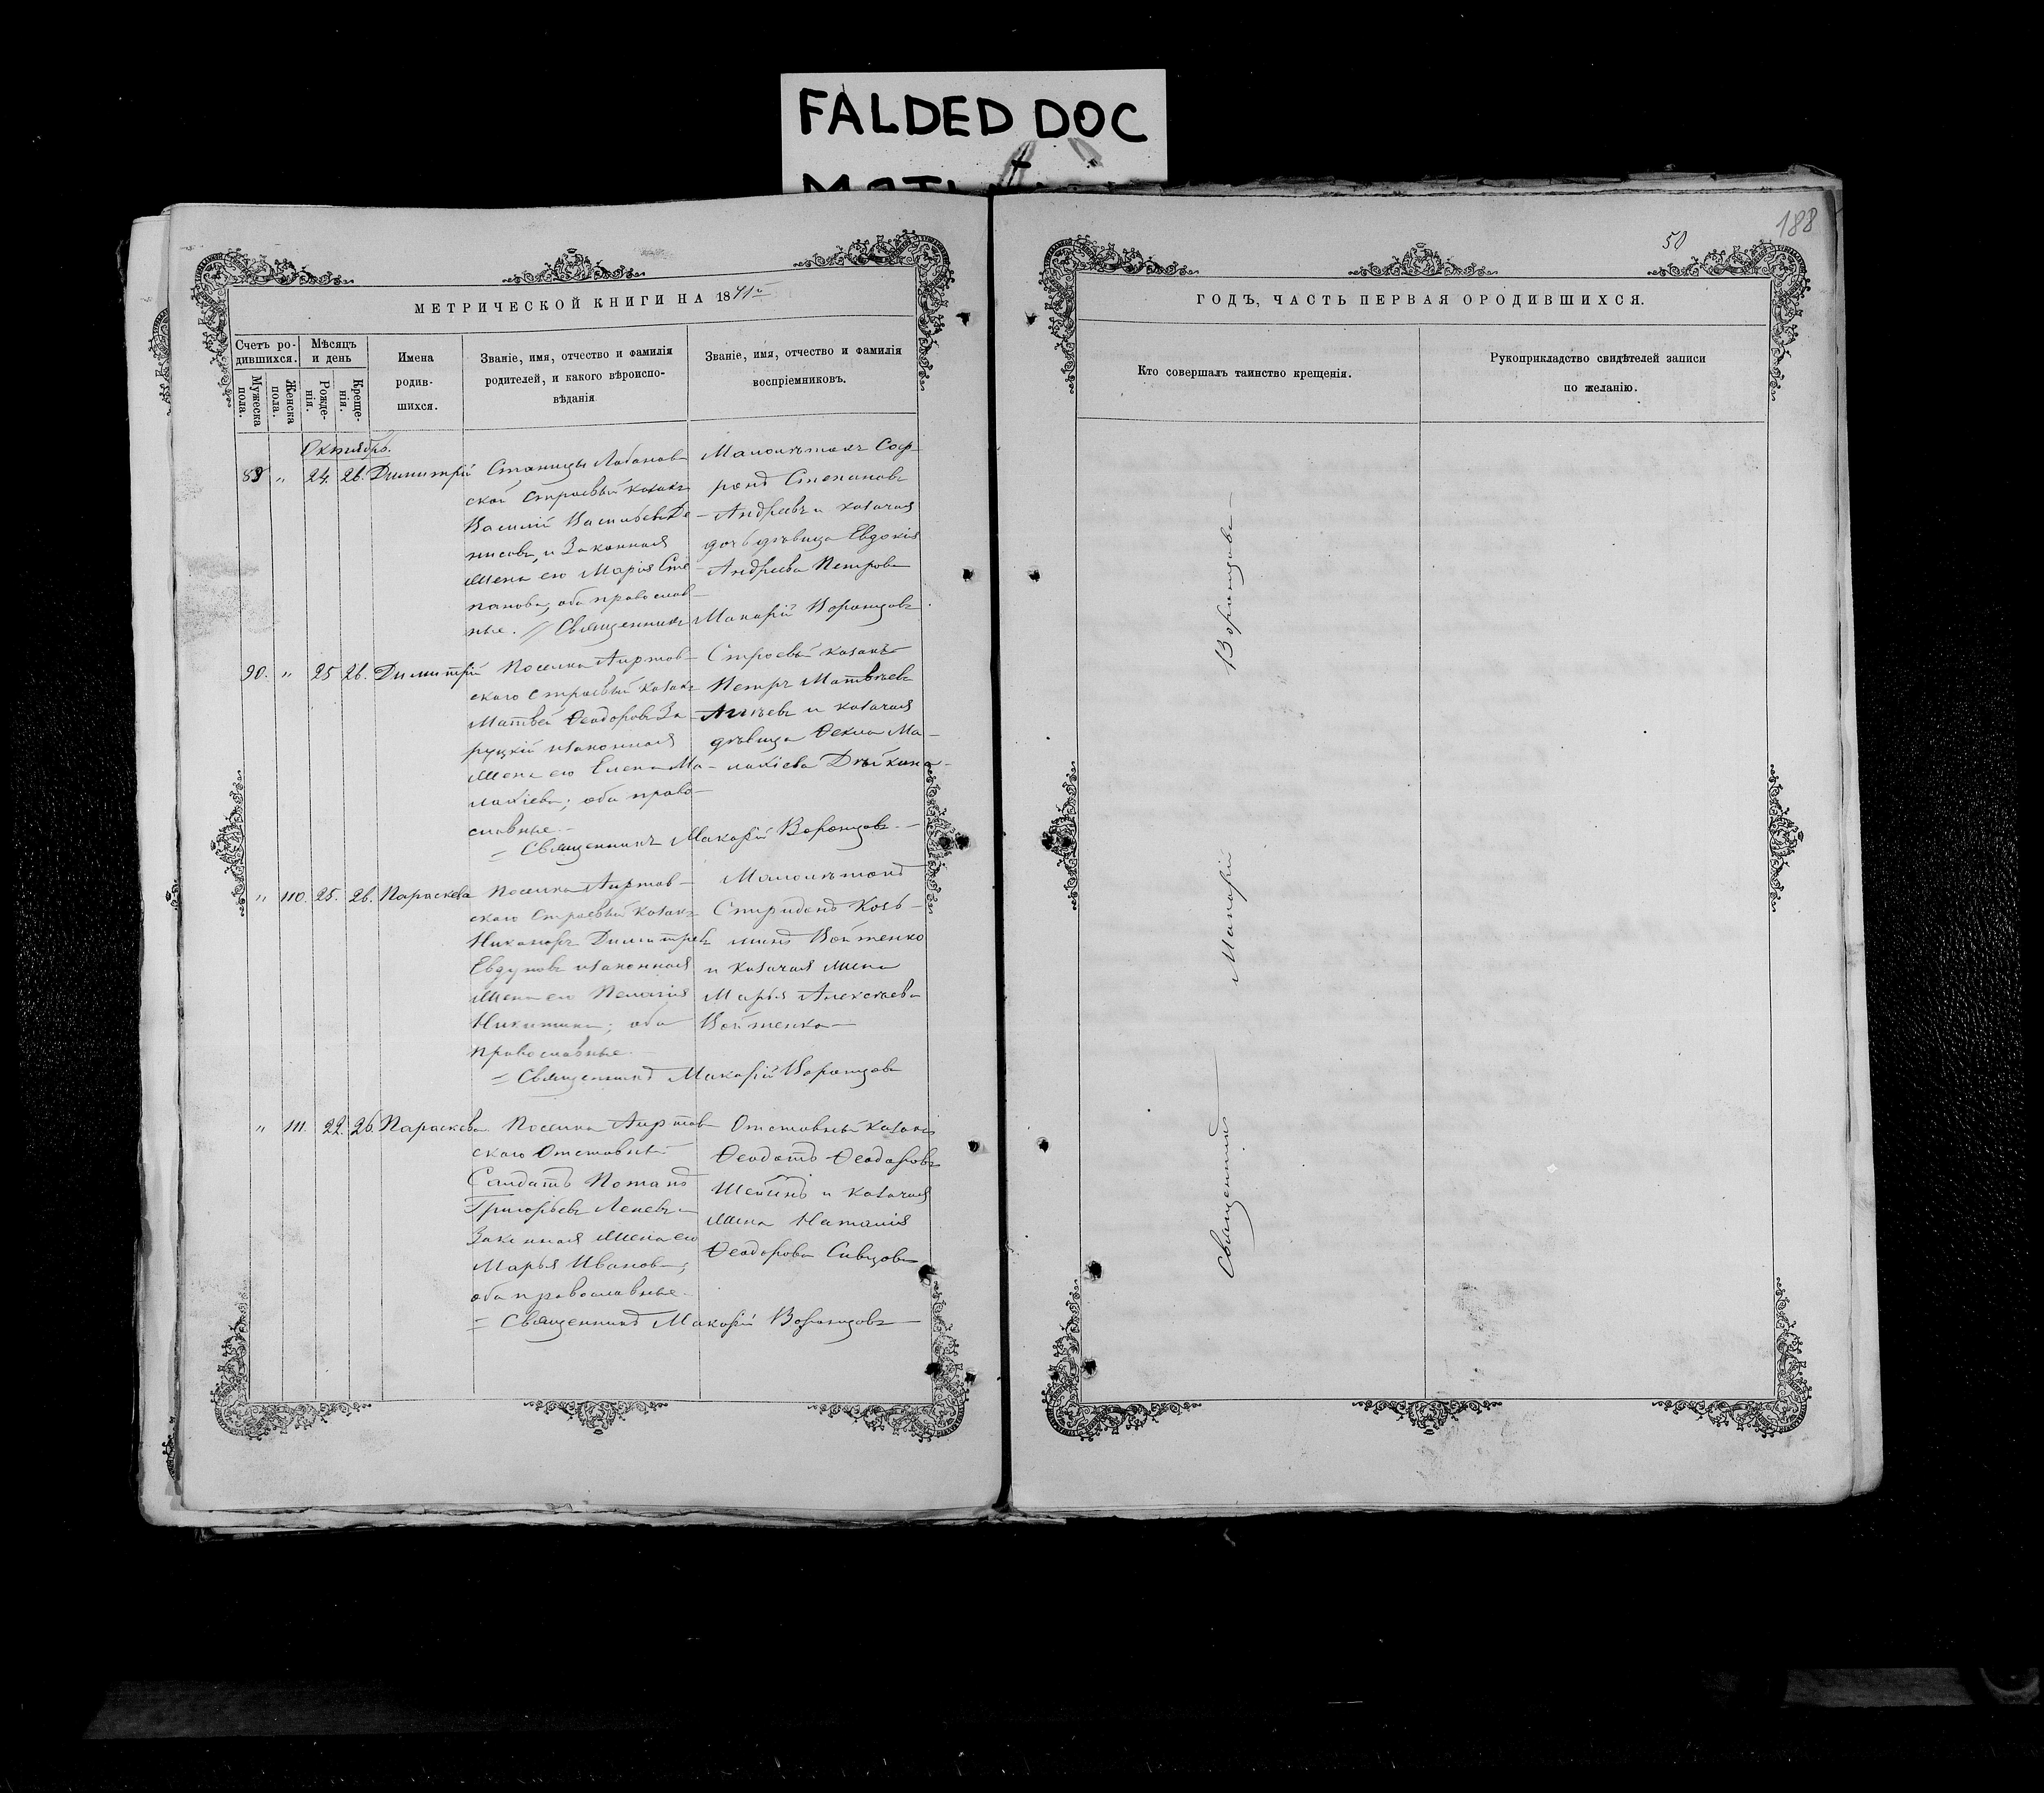 FALDED DOC
188
50
МЕТРИЧЕСКОЙ КНИГИ НА 1871й
Счетъ родившихся.
Мужеска пола.
Женска пола.
Мѣсяцъ и день
Рожденія.
Крещенія.
Имена родившихся.
Званіе, имя, отчество и фамилія
родителей, и какого вѣроиспо-
вѣданія
Званіе, имя, отчество и фамилія
воспріемниковъ.
Октябрь.
89 „ 24. 26. Димитрій
Станицы Лобанов-
ской строевый козакъ
Василій Васильевъ Де-
нисовъ, и законная
жена его Марія Сте-
панова, оба православ-
ные. // Священникъ Макарій Воронцовъ
Малолѣтокъ Соф-
ронъ Степановъ
Андреевъ и козачая
дочь дѣвица Евдокія
Андреева Петрова
90. „ 25 26. Димитрій
Поселка Аиртав-
скаго строевый козакъ
Матвей Ѳеодоровъ За-
руцкій и законная
жена его Елена Ма-
лахіева; оба право-
славные.
= Священникъ Макарій Воронцовъ.
Строевый козакъ
Петръ Матвѣевъ
и козачая
дѣвица Ѳекла Ма-
лахіева
„ 110. 25. 26. Параскева
Поселка Аиртав-
скаго строевый козакъ
Никаноръ Димитріевъ
Евдуновъ и законная
жена его Пелагія
Никитина; оба
православные.
= Священникъ Макарій Воронцовъ
Малолѣтокъ
Спиридонъ Козь-
минъ Войтенко
и козачая жена
Марья Алексѣева
Войтенко
„ 111. 22. 26. Параскева
Поселка Аиртав-
скаго отставный
Солдатъ Потапъ
Григорьевъ Леневъ
Законная жена его
Марья Иванова;
оба православные.
= Священникъ Макарій Воронцовъ
Отставный козакъ
Ѳеодотъ Ѳеодоровъ
Шеинъ и козачая
жена Наталія
Ѳеодорова Сивцова
ГОДЪ, ЧАСТЬ ПЕРВАЯ ОРОДИВШИХСЯ.
Кто совершалъ таинство крещенія.
Рукоприкладство свидѣтелей записи
по желанію.
Священникъ Макарій Воронцовъ